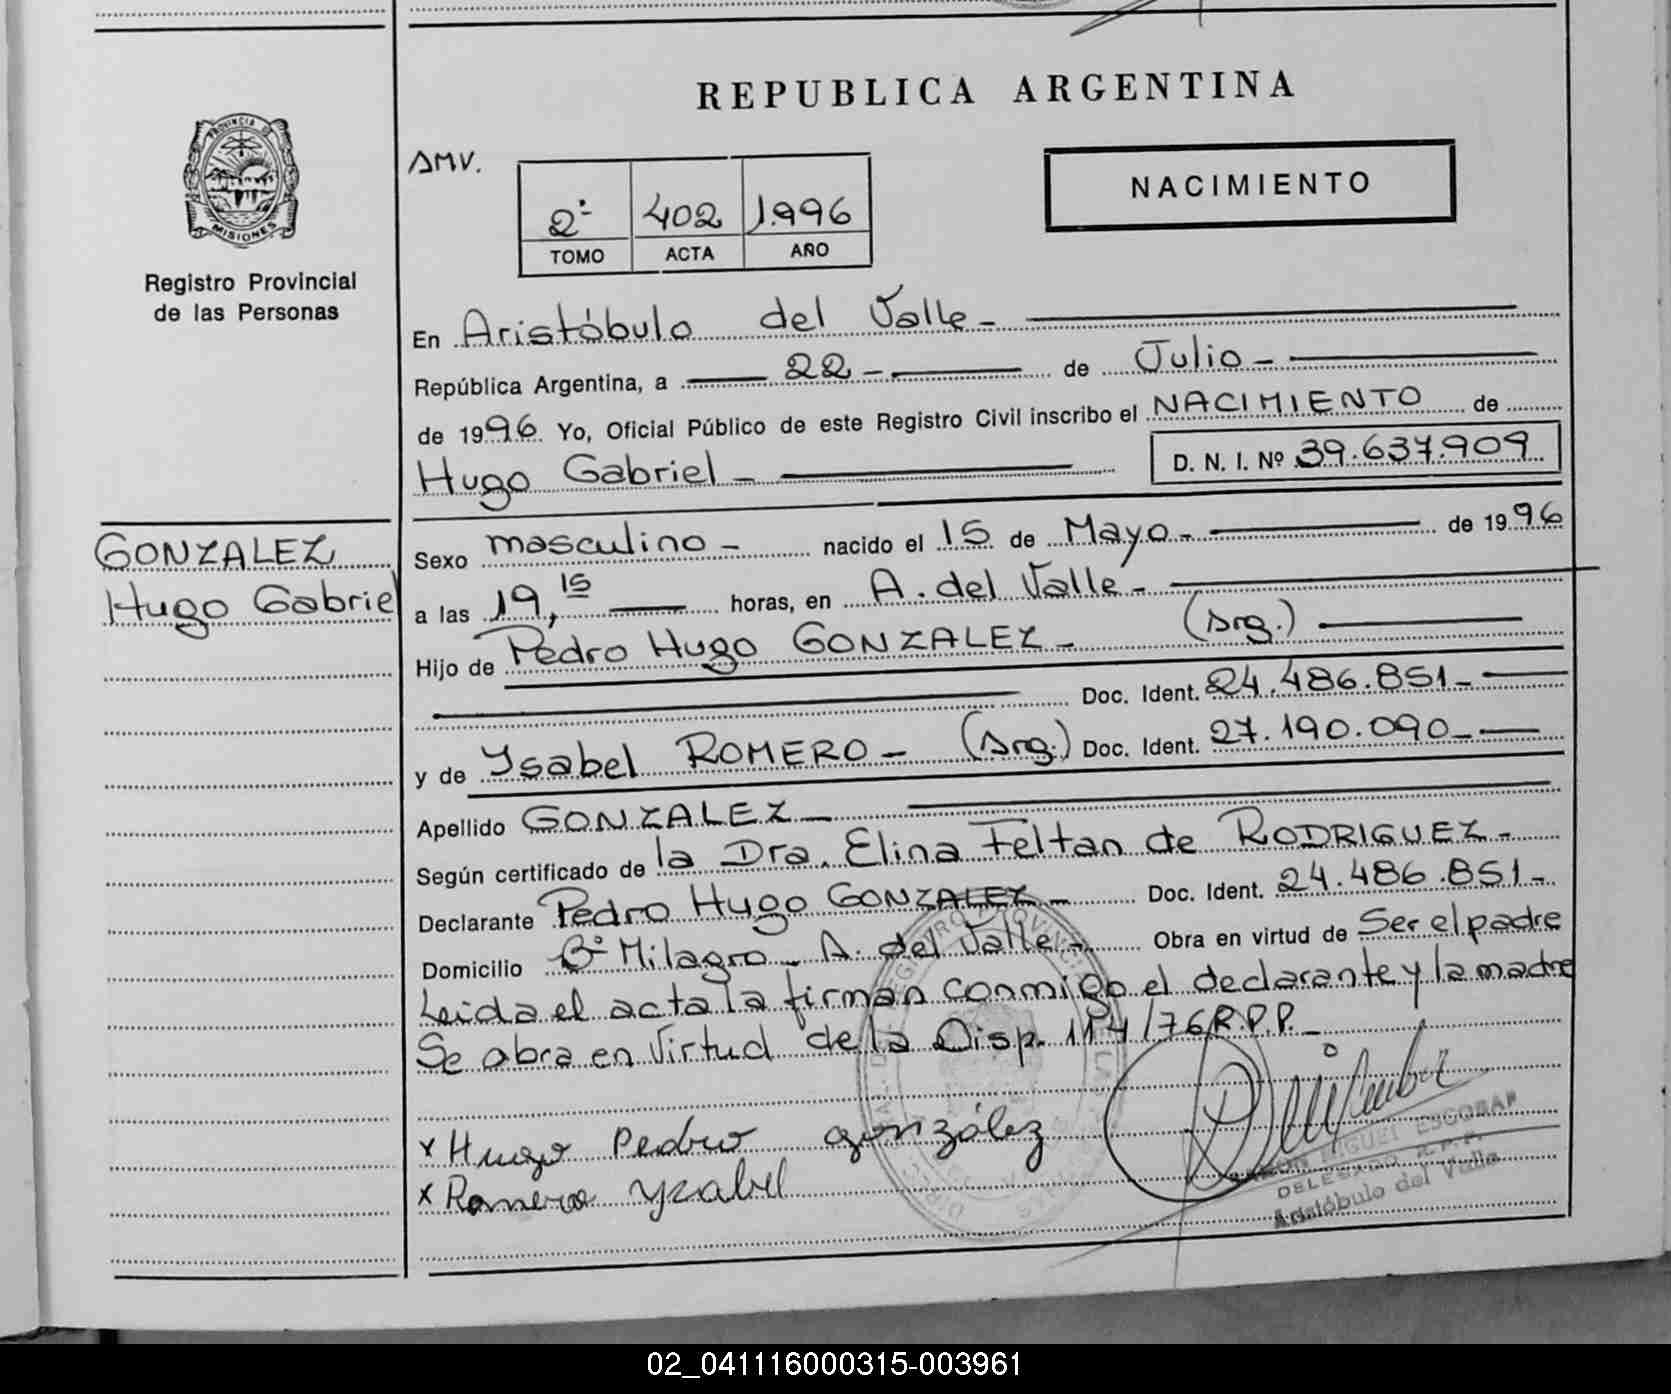 REPUBLICA ARGENTINA
PROVINCIA DE
MISIONES
Registro Provincial
de las Personas
AMV.
2º 402 1.996
TOMO ACTA AÑO
NACIMIENTO
En Aristóbulo del Valle -
República Argentina, a 22 - de Julio -
de 1996. Yo, Oficial Público de este Registro Civil inscribo el NACIMIENTO de
Hugo Gabriel - D. N. I. Nº 39.637.909
GONZALEZ
Hugo Gabriel
Sexo masculino - nacido el 15 de Mayo - de 1996
a las 19,15 horas, en A. del Valle -
Hijo de Pedro Hugo GONZALEZ - (Arg.)
Doc. Ident. 24.486.851 -
y de Ysabel ROMERO - (Arg.) Doc. Ident. 27.190.090 -
Apellido GONZALEZ -
Según certificado de la Dra. Elina Feltan de RODRIGUEZ -
Declarante Pedro Hugo GONZALEZ - Doc. Ident. 24.486.851 -
Domicilio Bº Milagro - A. del Valle - Obra en virtud de Ser el padre
Leida el acta la firman conmigo el declarante y la madre
Se obra en Virtud de la Disp. 114/76 R.P.P. -
x Hugo Pedro González
x Romero Yzabel
MIGUEL ESCOBAR
DELEGADO R.P.P.
Aristóbulo del Valle
02_041116000315-003961